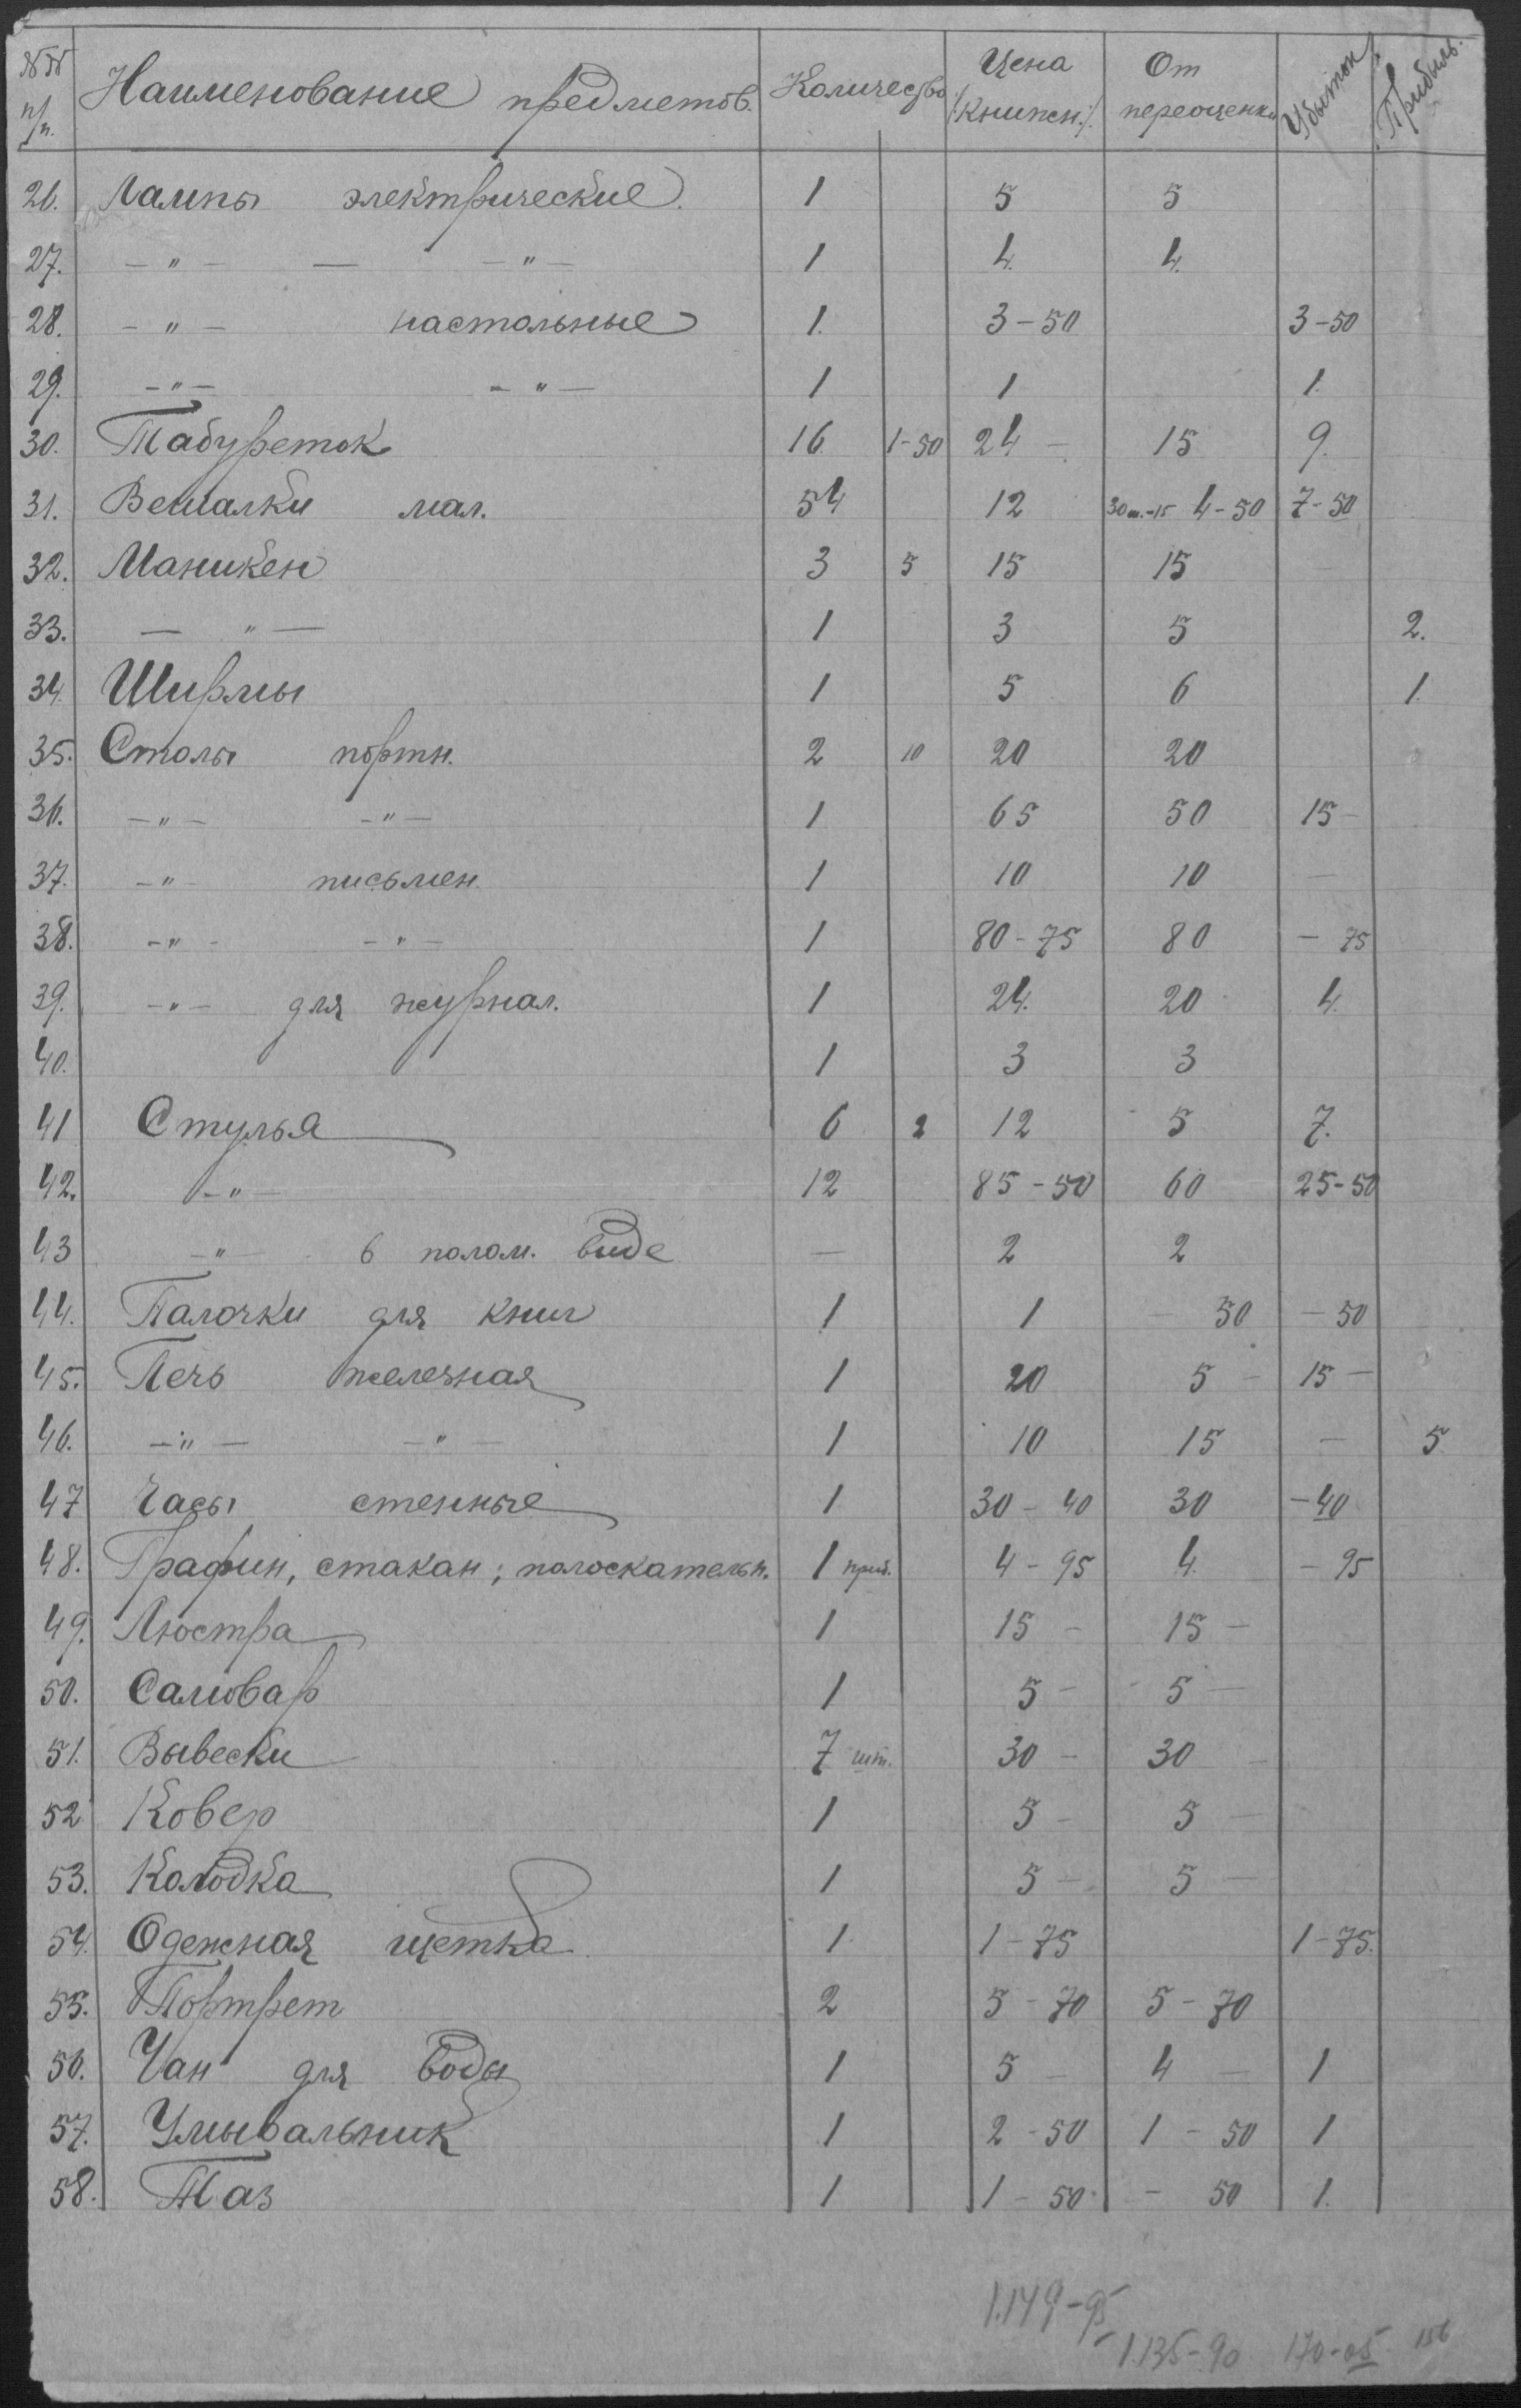 №№ п/п. Наименование предметов. Количество Цена /:книжн.:/ От переоценки Убыток Прибыль.
26. Лампы электрические. 1 5 5
27. -"- — -"- 1 4. 4.
28. -"- настольные 1. 3-50 3-50
29. -"- -"- 1 1 1.
30. Табуреток 16 1-50 24 - 15 9.
31. Вешалки мал. 54 12 30 ш.-15 4-50 7-50
32. Маникен 3 5 15 15
33. — " — 1 3 5 2.
34. Ширмы 1 5 6 1.
35. Столы портн. 2 10 20 20
36. -"- -"- 1 65 50 15-
37. -"- письмен. 1 10 10 —
38. -"- -"- 1 80-75 80 - 75
39. -"- для журнал. 1 24. 20 4.
40. 1 3 3
41 Стулья 6 2 12 5 7.
42. -"- 12 85-50 60 25-50
43 -"- в полом. виде — 2 2
44. Палочки для книг 1 1 - 50 - 50
45. Печь железная 1 20 5 - 15 -
46. -"- -"- 1 10 15 — 5
47 Часы стенные 1 30 - 40 30 -40
48. Графин, стакан; полоскательн. 1 приб. 4 - 95 4. - 95
49. Люстра 1 15 - 15 -
50. Самовар 1 5 - 5 -
51. Вывески 7 шт. 30 - 30 -
52 Ковер 1 5 - 5 -
53. Колодка 1 5 - 5 -
54. Одежная щетка 1. 1-75 1-75.
55. Портрет 2 5-70 5-70
56. Чан для воды 1 5 - 4 - 1
57. Умывальник 1 2-50 1-50 1
58. Таз 1 1-50 - 50 1.
1.149-95
1.135-90 170-05 156